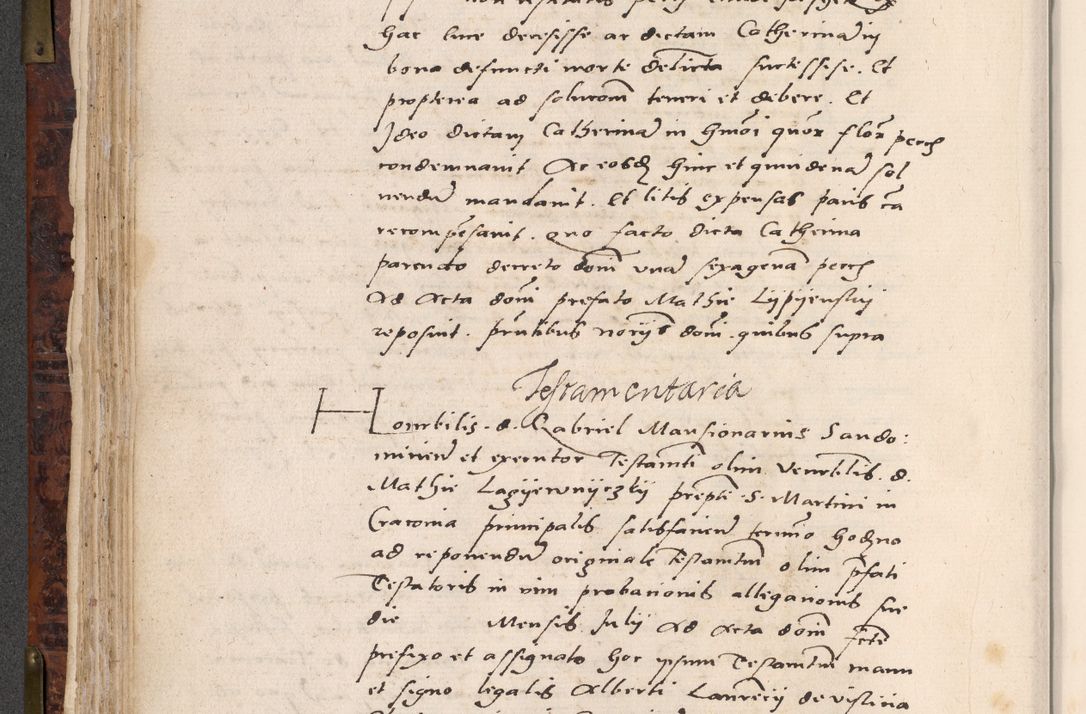 hac luce decesisse ac dictam Catherinā in
bona defuncti morte delicta suctessise. Et
propterea ad solucom̄ teneri et debere. Et
Ideo dictam Catherinā in hmōi quor flor perch
condemnavit Ac eosd hinc et quindenā sol
vendū mandavit. Et litis expensas paris cā
recompēsavit. Quo facto dicta Catherina
parendo decreto dom̄i unā sexagenā perch
Ad Acta dom̄i prefato Mathie
reposuit. pn̄tibus noriis dom̄i quibus supra
Testamentaria
Honorbilis d. Gabriel Mansionarius Sando:
mirien̄ et executor Testamti olim Venerbilis d.
Mathie prepti S. Martini in
Cracovia principalis satisfacien̄ termīo hodno
ad reponendū originale Testamtum olim pfati
Testatoris in vim probacionis allegacionis sue
die Mensis Julij Ad Acta dom̄i
prefixo et assignato hoc ipsum Testamtum manu
et signo legalis Alberti Laurēcij de vislicia